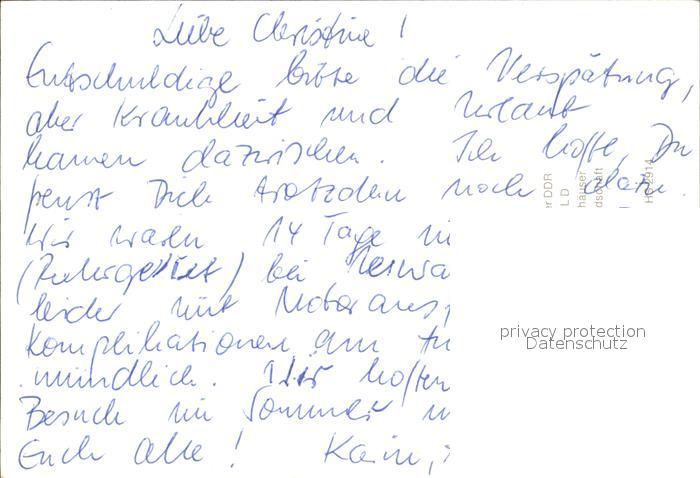 Liebe Christine!
Entschuldige bitte die Verspätung,
aber Krankheit und Urlaub
kamen dazwischen. Ich hoffe, Du
freust Dich trotzdem noch
Wir waren 14 Tage in
(Ruhrgebiet) bei
leider mit
Komplikationen am
mündlich. Wir hoffen
Besuch im Sommer
Euch alle! Karin,
er DDR
L D
häuser
dschaft
privacy protection
Datenschutz